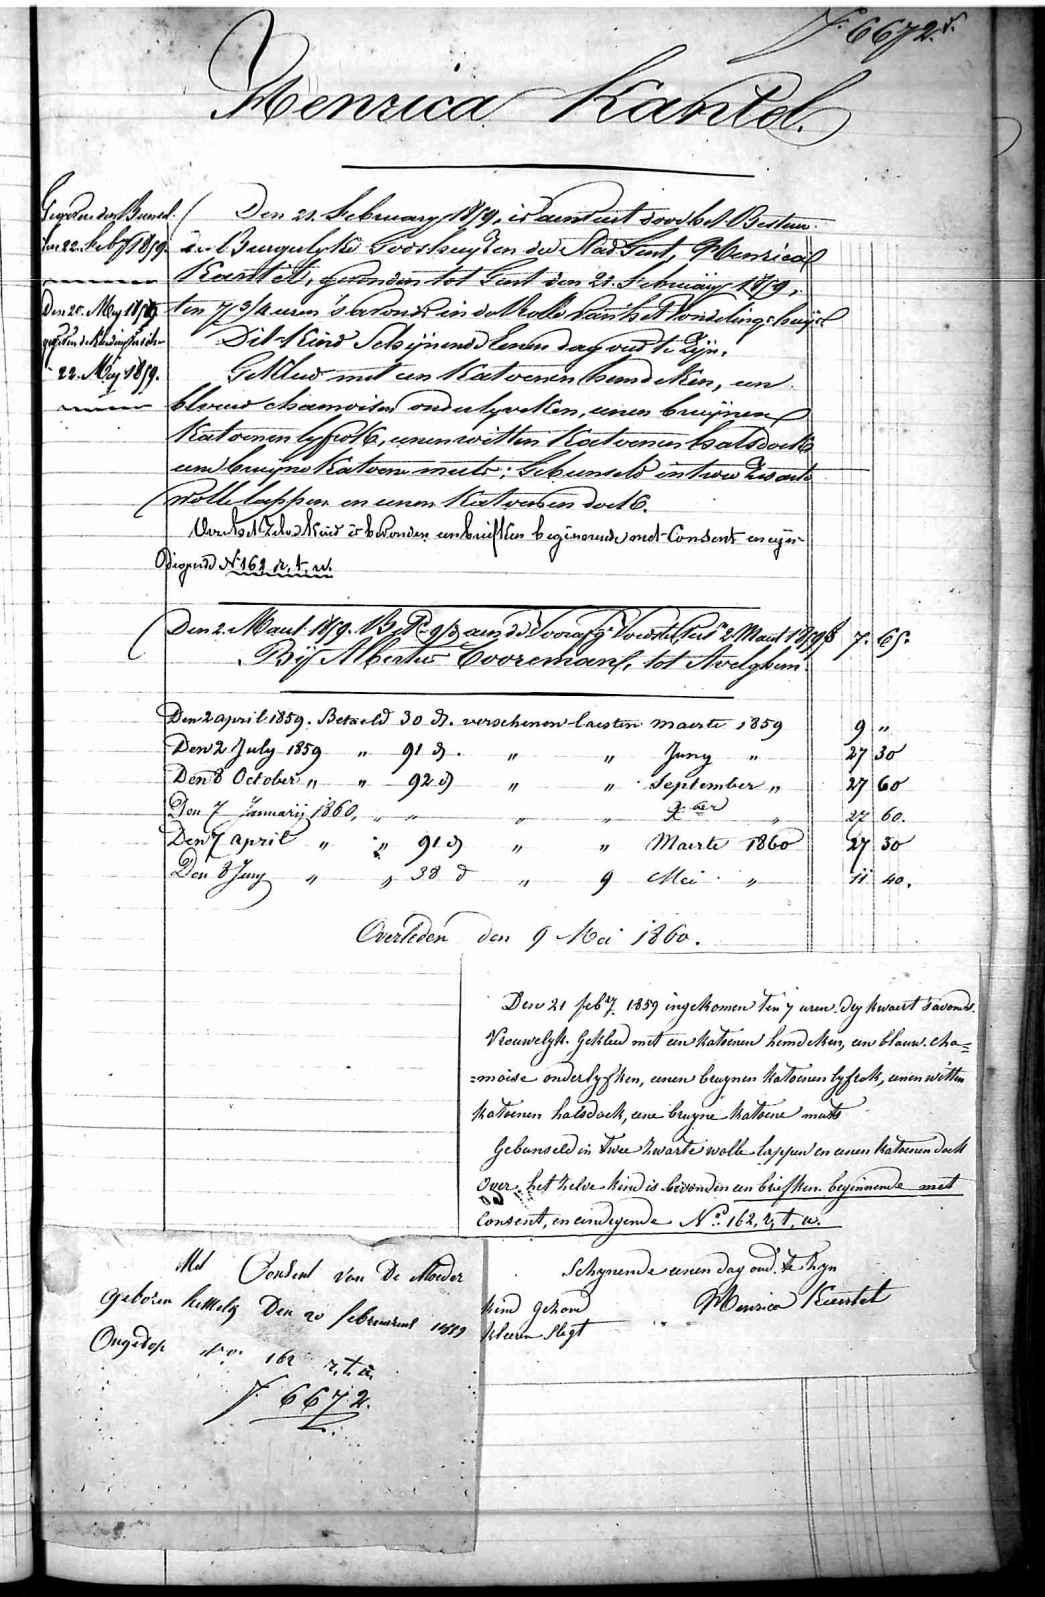 F. 6672.
Henrica Kantel.
Den 21. February 1859, is aenveert door het Bestuer
der Burgerlyke Godshuyzen der Stad Gent, Henrica
Kantel, gevonden tot Gent den 21. February 1859,
ten 7 3/4 uren 's avonds in de Rolle van het Vondelingshuys
Dit Kind schijnende eenen dag oud te zijn.
Gekleed met een Katoenen hemdeken, een
blauw chamoise onderlyveken, eenen bruynen
Katoenen lyfrok, eenen witten Katoenen halsdoek
eene bruyne Katoene muts; Gebunseld in twee zwarte
wolle lappen en eenen Katoenen doek.
Over het zelve Kind is bevonden een briefken beginnende met Consent en eyn-
digende N° 162 r. t. u.
Den 22 feby 1859.
Den 20. Mey 1859
22. Mey 1859.
Den 2. Maert 1859. 2 Maert 1859 7. 65.
Bij Albertus Cooremans, tot Avelghem.
Den 2 april 1859. Betaeld 30 d. verschenen laesten maerte 1859 9 "
Den 2 July 1859 " 91 d. " " Juny " 27 30
Den 8 October " " 92 d " " September " 27 60
Den 7 Januarij 1860, " " " " Xber " 27 60.
Den 7 april " " 91 d " " Maerte 1860 27 30
Den 8 Juny " " 38 d " 9 Mei " 11 40.
Overleden den 9 Mei 1860.
Den 21 feb.ry 1859 ingekomen ten 7 uren dry kwaert s'avonds.
Vrouwelyk. Gekleed met een katoenen hemdeken, een blauw cha=
=moise onderlyfken, eenen bruynen katoenen lyfrok, eenen witten
katoenen halsdoek, eene bruyne katoene muts
Gebunseld in twee zwarte wolle lappen en eenen katoenen doek
Over het zelve kind is bevonden een briefken beginnende met
Consent, en eindigende N° 162, r, t, u.
Schynende eenen dag oud te zyn
kind gezond Henrica Kantel
kleeren slegt
Met Consent van De Moeder
geboren Den 20 februarius 1859
Ongedop N° 162 r. t. u.
F. 6672.